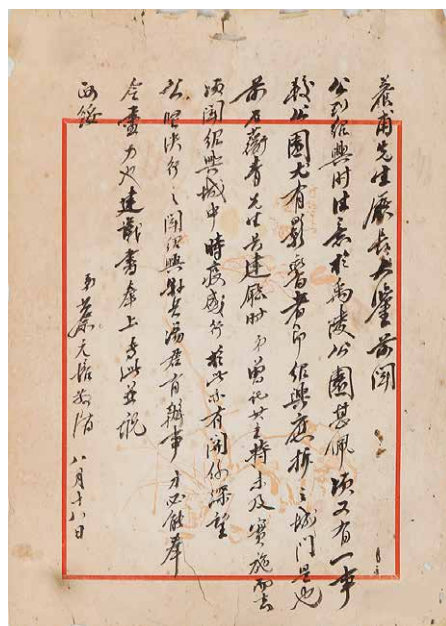 慕甫先生廳長大鑒前聞
公到紹興時注意於禹陵公園甚佩頃又有一事
較公園尤有影響者即紹興應拆之城門是也
前石蘅青先生長建廳時弟曾化其主持未及實施而去
頃聞紹興城中時疫盛行於此亦有關係深望
公堅決行之聞紹興縣長湯君有辦事才必能奉
令盡力也建議書奉上專此並祝
政綏
弟蔡元培敬啓
八月十八日